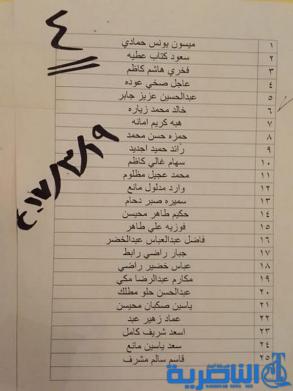 ٤
٢٠١٧/٣/١٩
١ ميسون يونس حمادي
٢ سعود كتاب عطيه
٣ فخري هاشم كاظم
٤ عاجل صخي عوده
٥ عبدالحسين عزيز جابر
٦ خالد محمد زياره
٧ هبه كريم امانه
٨ حمزه حسن محمد
٩ رائد حميد اجديد
١٠ سهام غالي كاظم
١١ محمد عجيل مظلوم
١٢ وارد مدلول مانع
١٣ سميره صبر دحام
١٤ حكيم طاهر محيسن
١٥ فوزيه علي طاهر
١٦ فاضل عبدالعباس عبدالخضر
١٧ جبار راضي رابط
١٨ عباس خضير راضي
١٩ مكارم عبدالرضا مكي
٢٠ عبدالحسن حلو مطلك
٢١ ياسين صكبان محيسن
٢٢ عماد زهير عبد
٢٣ اسعد شريف كامل
٢٤ سعد ياسين مانع
٢٥ قاسم سالم مشرف
الناصرية